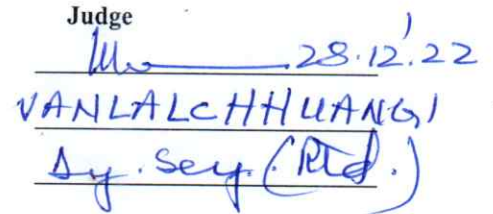 Judge
28.12.22
VANLALCHHUANGI
Dy. Secy. (Rtd.)